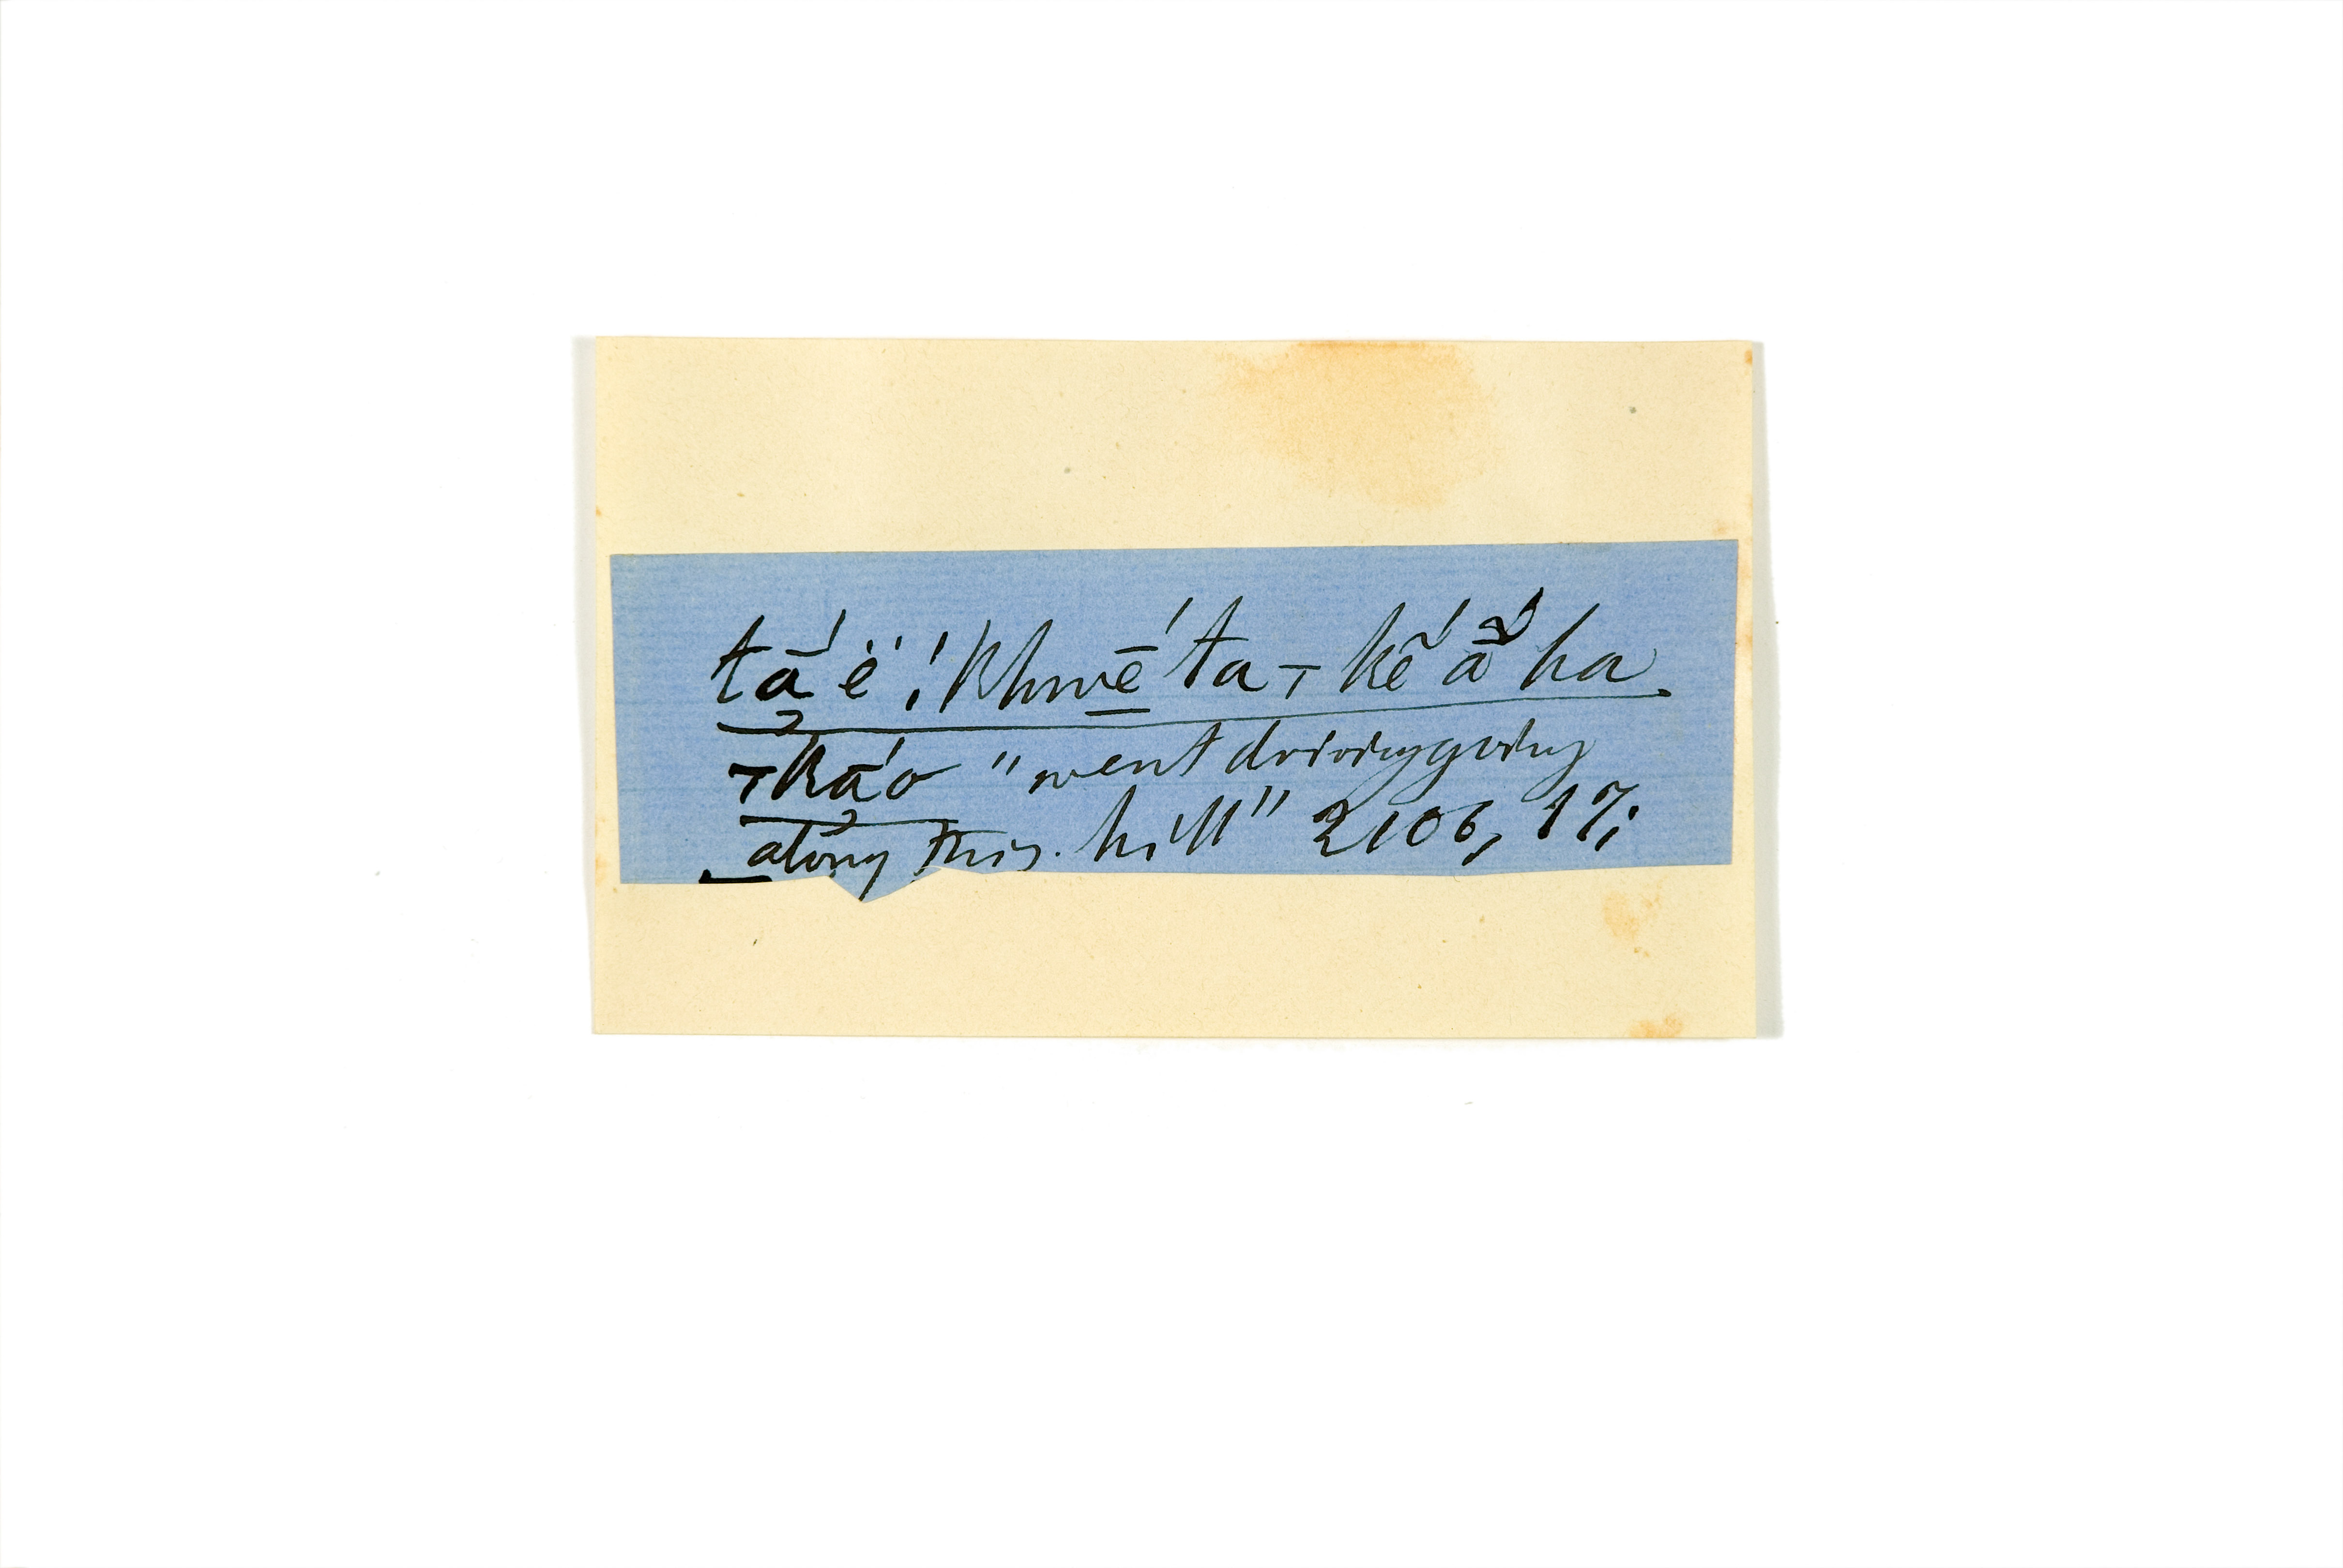 tā́ ë ! khwḗ̱ ta - kḗ ā́ ha
- kā́ o "went driving going
along this. hill" 2106, 17;